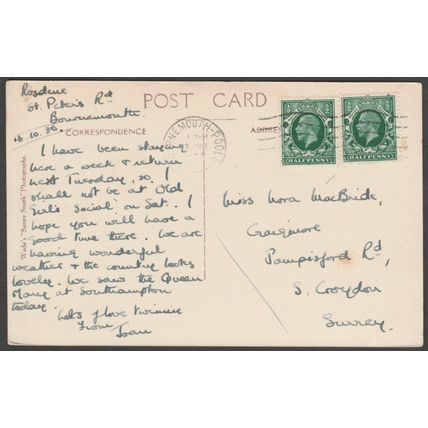 Rosdene
St. Peter's Rd
Bournemouth
13.10.36.
POST CARD
CORRESPONDENCE
ADDRE
NEMOUTH-POOLE
HALFPENNY
HALFPENNY
I have been staying
here a week & return
next Tuesday, so I
shall not be at Old
Girls Social on Sat. I
hope you will have a
good time there. We are
having wonderful
weather & the country looks
lovely. We saw the Queen
Mary at Southampton
today.
Lots of love
From Joan
Wade's "Sunny South" Photographs.
Miss Nora MacBride,
Craigmore
Pampisford Rd,
S. Croydon
Surrey.